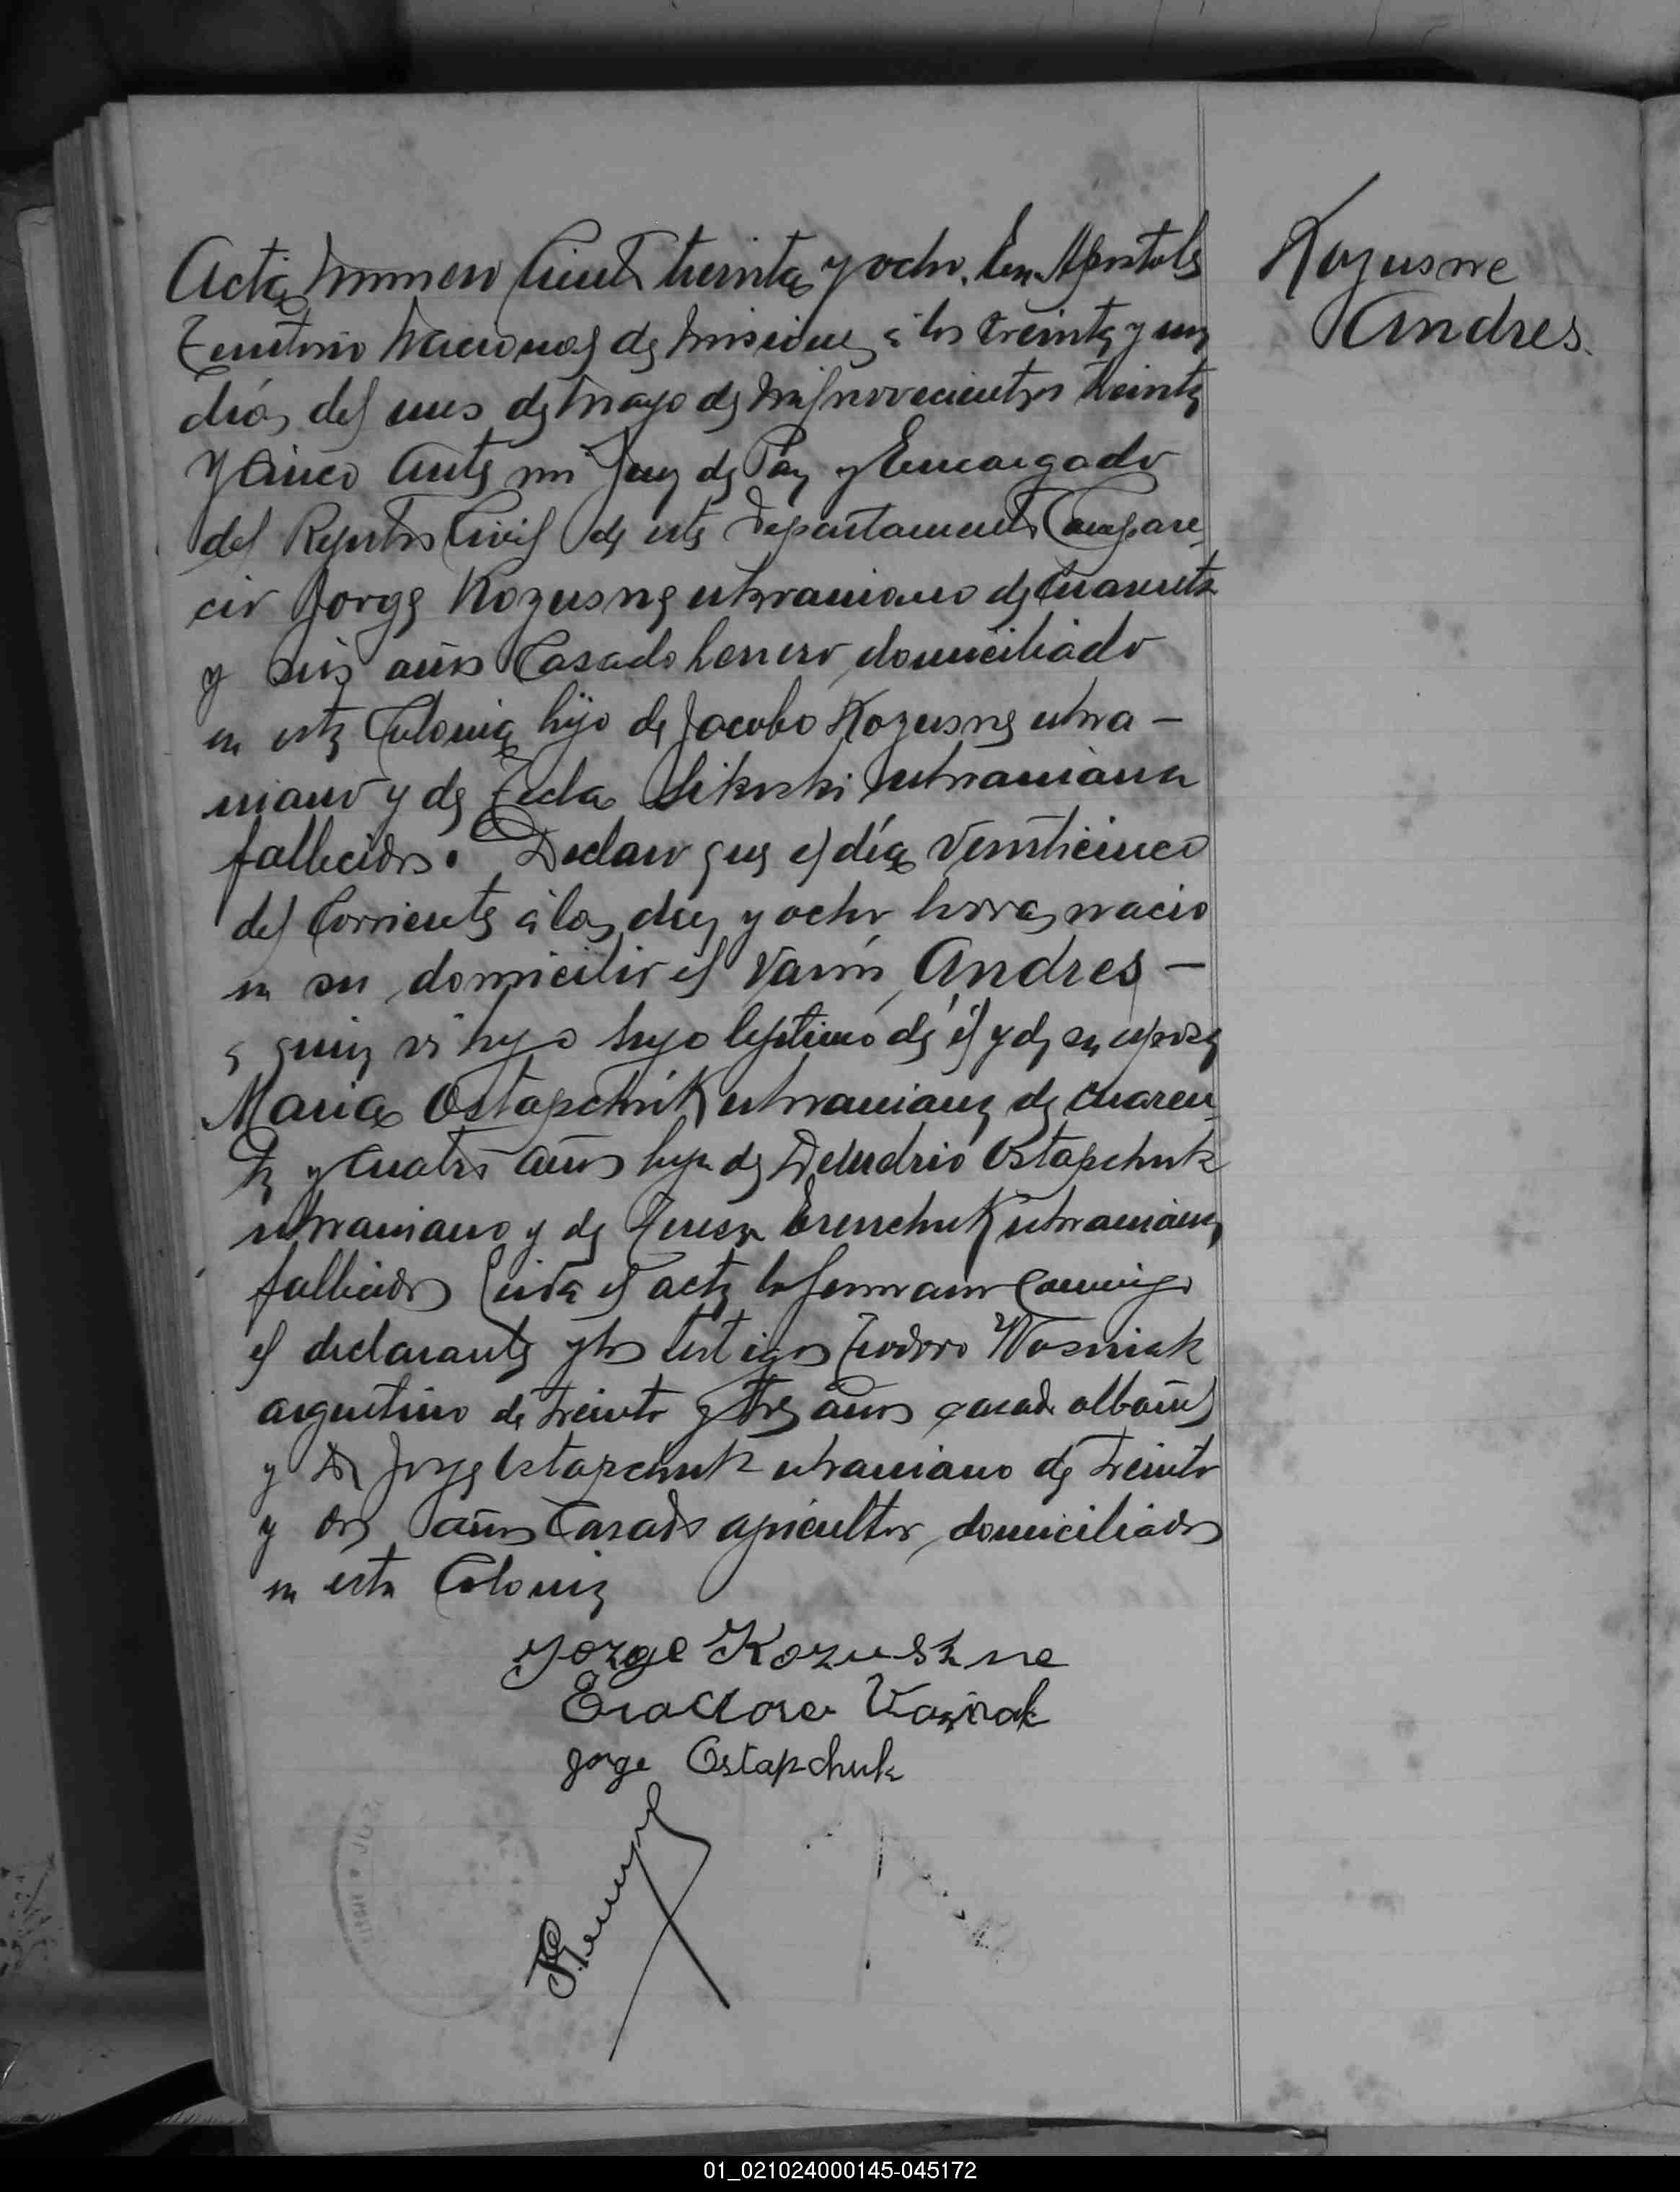 Acta Número Ciento treinta y ocho. En Apóstoles
Kozusne
Andres.
Territorio Nacional de Misiones á los treinta y un
días del mes de Mayo de Mil novecientos treinta
y Cinco Ante mi Juez de Paz y Encargado
del Registro Civil de este Departamento Compare
ció Jorge Kozusne ukraniano de Cuarenta
y seis años Casado herrero, domiciliado
en esta Colonia hijo de Jacobo Kozusne ukra-
niano y de Tecla Sikorki ukraniana
fallecidos. Declaró que el día Veinticinco
del Corriente á las diez y ocho horas nació
en su domicilio el Varón Andres -
quien es hijo suyo legítimo de él y de su esposa
Maria Ostapchuk ukraniana de cuaren
ta y Cuatro años hija de Demetrio Ostapchuk
ukraniano y de Teresa ukraniana
fallecidos Leida el acta la firmaron Conmigo
el declarante y los testigos Teodoro Wosniak
argentino de treinta y tres años casado albañil
y Dn Jorge Ostapchuk ukraniano de treinta
y dos años Casado agricultor, domiciliados
en esta Colonia
Jorge Kozuszne
Ostapchuk
Jorge
01_021024000145-045172